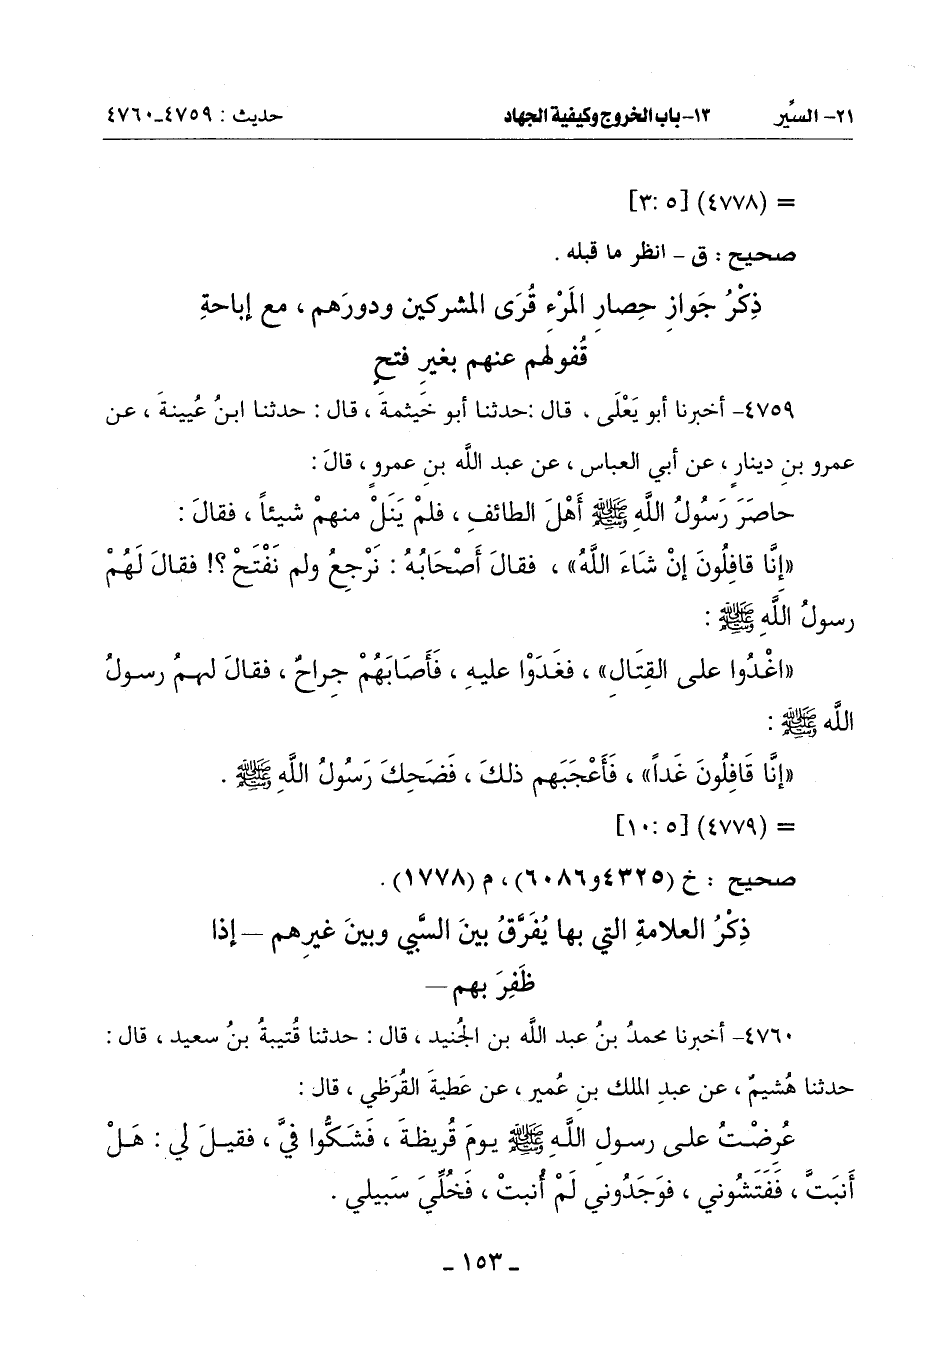 ٢١- السِّير ١٣-باب الخروج وكيفية الجهاد حديث : ٤٧٥٩_٤٧٦٠
= (٤٧٧٨) [٥ :٣]
صحيح : ق - انظر ما قبله .
ذِكْرُ جَوازِ حِصارِ المَرْءِ قُرَى المشركين ودورَهم ، مع إباحةِ
قُفولهم عنهم بغيرِ فتحٍ
٤٧٥٩- أخبرنا أبو يَعْلَى ، قال :حدثنا أبو خَيثمةَ ، قال : حدثنا ابنُ عُيينةَ ، عن
عمرو بنِ دينارٍ ، عن أبي العباس ، عن عبد اللَّه بنِ عمرٍو ، قالَ :
حاصَرَ رَسولُ اللَّهِ ﷺ أَهْلَ الطائفِ ، فلمْ يَنَلْ منهمْ شيئاً ، فقالَ :
«إِنَّا قافِلُونَ إنْ شاءَ اللَّهُ» ، فقالَ أَصْحابُهُ : نَرْجِعُ ولم نَفْتَحْ ؟! فقالَ لَهُمْ
رسولُ اللَّهِ ﷺ :
«اغْدُوا على القِتَالِ» ، فغَدَوْا عليهِ ، فَأَصَابَهُمْ جِراحٌ ، فقالَ لهمُ رسولُ
اللَّه ﷺ :
«إنَّا قَافِلُونَ غَداً» ، فَأَعْجَبَهم ذلكَ ، فضَحِكَ رَسُولُ اللَّهِ ﷺ .
= (٤٧٧٩) [٥ :١٠]
صحيح : خ (٤٣٢٥و٦٠٨٦) ، م (١٧٧٨) .
ذِكْرُ العلامةِ التي بها يُفَرَّقُ بينَ السَّبي وبينَ غيرِهم —إذا
ظَفِرَ بهم—
٤٧٦٠- أخبرنا محمدُ بنُ عبد اللَّه بن الجُنيد ، قال : حدثنا قُتيبةُ بنُ سعيد ، قال :
حدثنا هُشيمٌ ، عن عبدِ الملك بنِ عُميرٍ ، عن عَطيةَ القُرَظي ، قال :
عُرِضْتُ على رسولِ اللَّهِ ﷺ يومَ قُريظةَ ، فَشَكُّوا فيَّ ، فقيلَ لي : هَلْ
أَنبَتَّ ، فَفَتَشُوني ، فوَجَدُوني لَمْ أُنبتْ ، فَخُلِّيَ سَبيلي .
_ ١٥٣ _